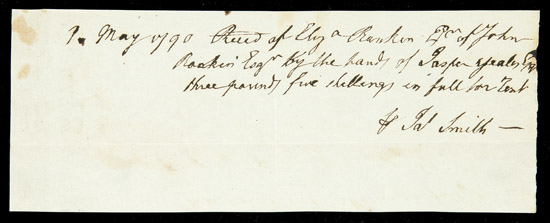 1. May 1790 Recd of Eliza Rankin Exr of John
Rankin Esqr by the hands of Jasper Yeates Esqr
three pounds five shillings in full for Rent
Jas Smith —